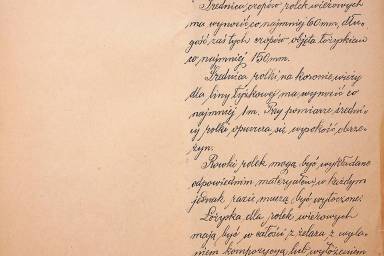 Średnica czopów rolek wieżowych
ma wynosić co najmniej 60 mm, dłu-
gość zaś tych czopów objęta łożyskiem
co najmniej 150 mm.
Średnica rolki na koronie wieży
dla liny łyżkowej ma wynosić co
najmniej 1 m. Przy pomiarze średni-
cy rolki opuszcza się wysokość obrze-
żyn.
Rowki rolek mogą być wykładane
odpowiednim materyałem, w każdym
jednak razie muszą być wytoczone.
Łożyska dla rolek wieżowych
mają być w całości z żelaza z wyla-
niem kompozycyą lub wyłożeniem